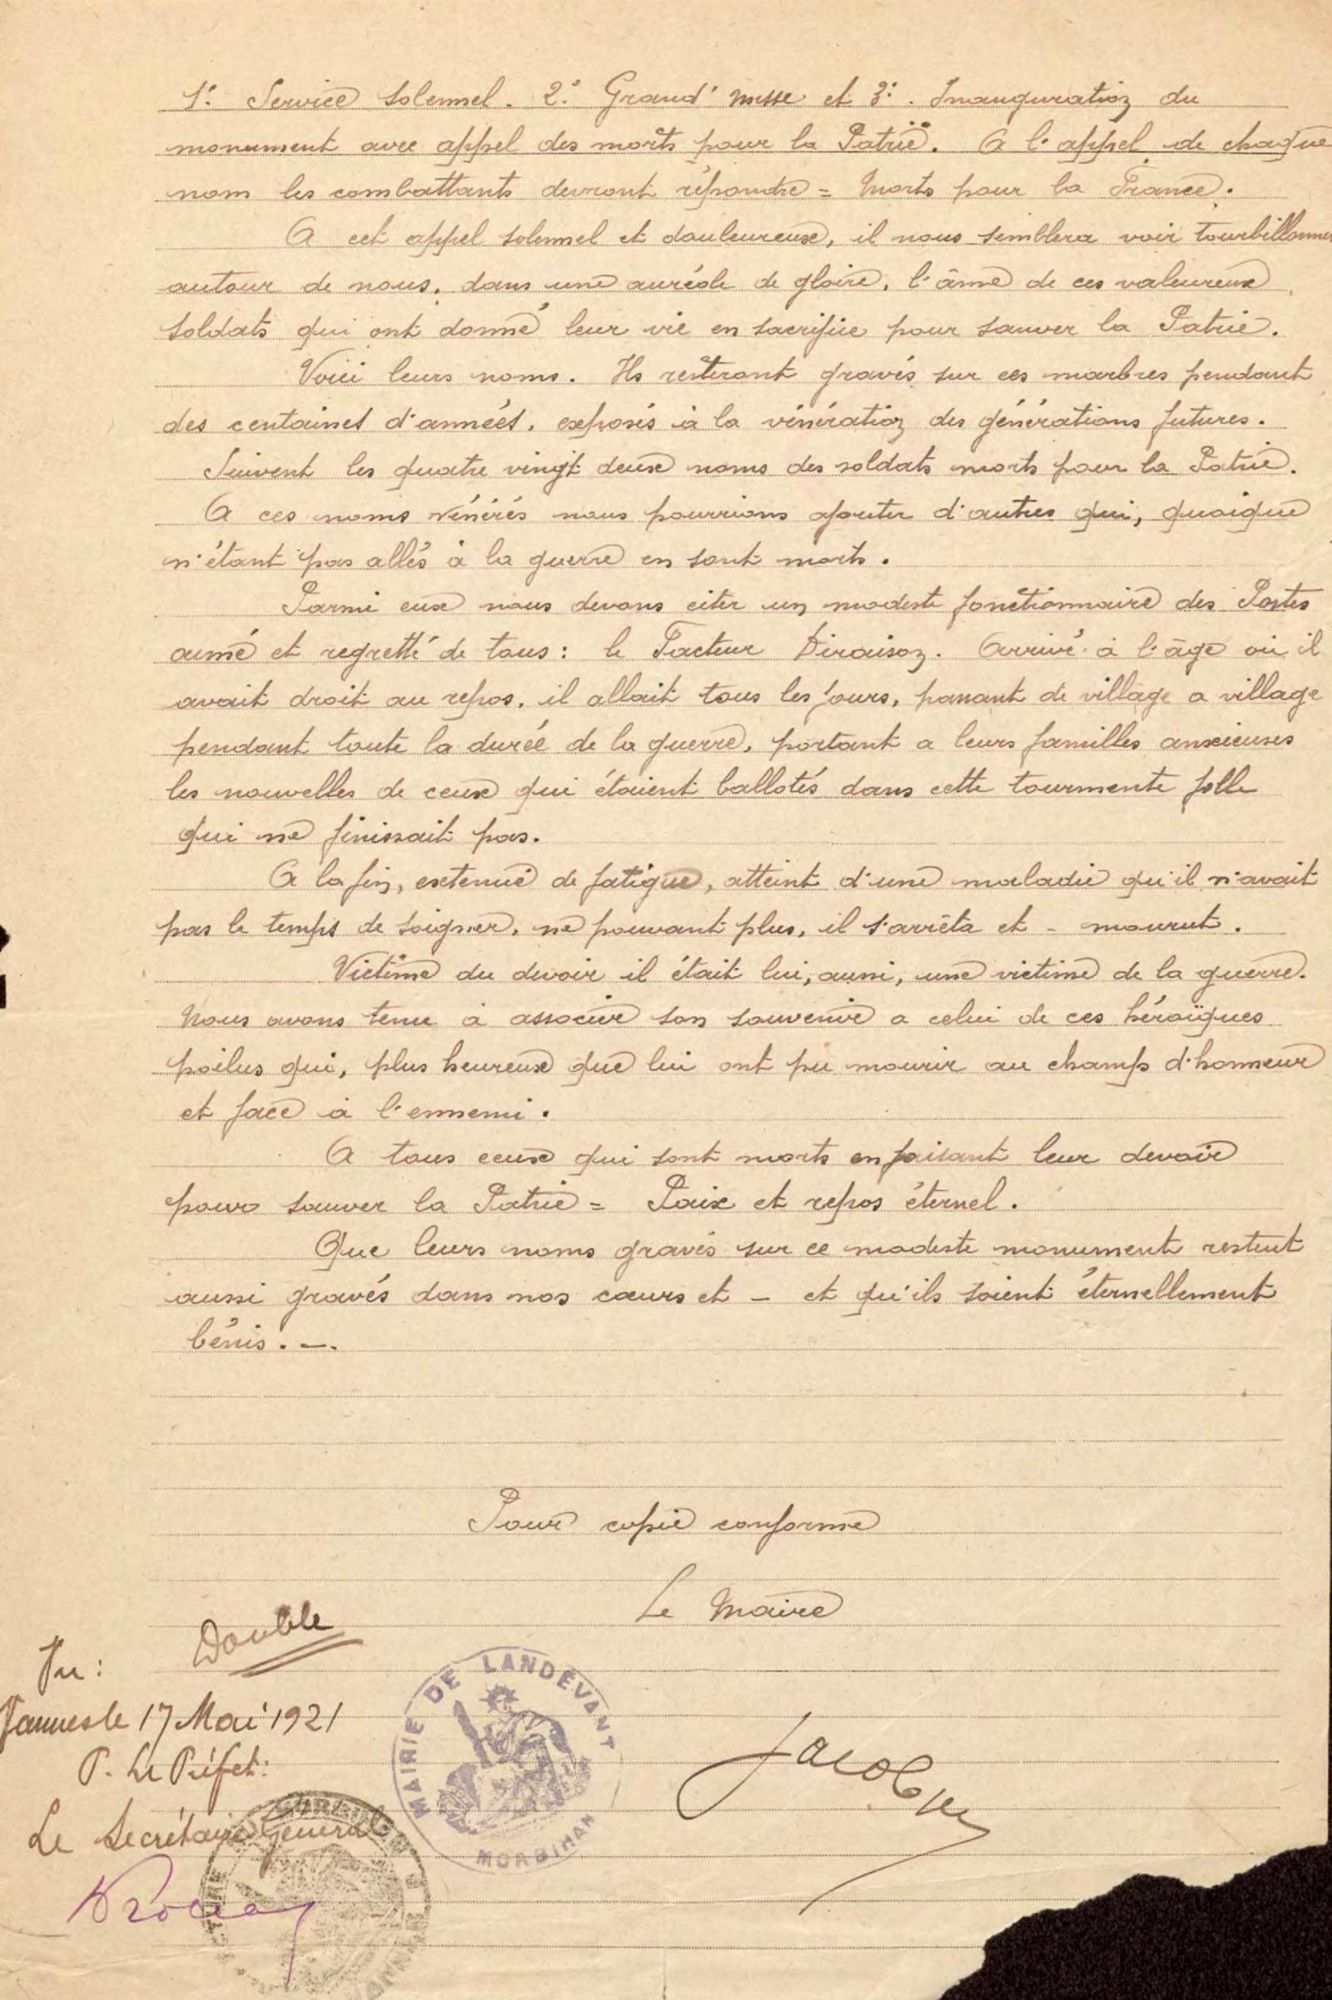 1.° Service solennel. 2.° Grand' messe et 3.° Inauguration du
monument avec appel des morts pour la Patrie. A l'appel de chaque
nom les combattants devront répondre = Morts pour la France.
A cet appel solennel et douleureux, il nous semblera voir tourbillonner
autour de nous, dans une auréole de gloire, l'âme de ces valeureux
soldats qui ont donné leur vie en sacrifice pour sauver la Patrie.
Voici leurs noms. Ils resteront gravés sur ces marbres pendant
des centaines d'années, exposés à la vénération des générations futures.
Suivent les quatre vingt deux noms des soldats morts pour la Patrie.
A ces noms vénérés nous pourrions ajouter d'autres qui, quoique
n'étant pas allés à la guerre en sont morts.
Parmi eux nous devons citer un modeste fonctionnaire des Postes
aimé et regretté de tous : le Facteur Diraison. Arrivé à l'âge où il
avait droit au repos, il allait tous les jours, passant de village a village
pendant toute la durée de la guerre, portant a leurs familles anxieuses
les nouvelles de ceux qui étaient ballotés dans cette tourmente folle
qui ne finissait pas.
A la fin, extenué de fatigue, atteint d'une maladie qu'il n'avait
pas le temps de soigner, ne pouvant plus, il s'arrêta et - mourut.
Victime du devoir il était lui, aussi, une victime de la guerre.
Nous avons tenu à associer son souvenir a celui de ces héroïques
poilus qui, plus heureux que lui ont pu mourir au champ d'honneur
et face à l'ennemi.
A tous ceux qui sont morts en faisant leur devoir
pour sauver la Patrie = Paix et repos éternel.
Que leurs noms gravés sur ce modeste monument restent
aussi gravés dans nos cœurs et - et qu'ils soient éternellement
bénis. -.
Pour copie conforme
Le Maire
Double
Vu :
Vannes le 17 Mai 1921
P. Le Préfet :
Le Secrétaire Général
MAIRIE DE LANDÉVANT
MORBIHAN